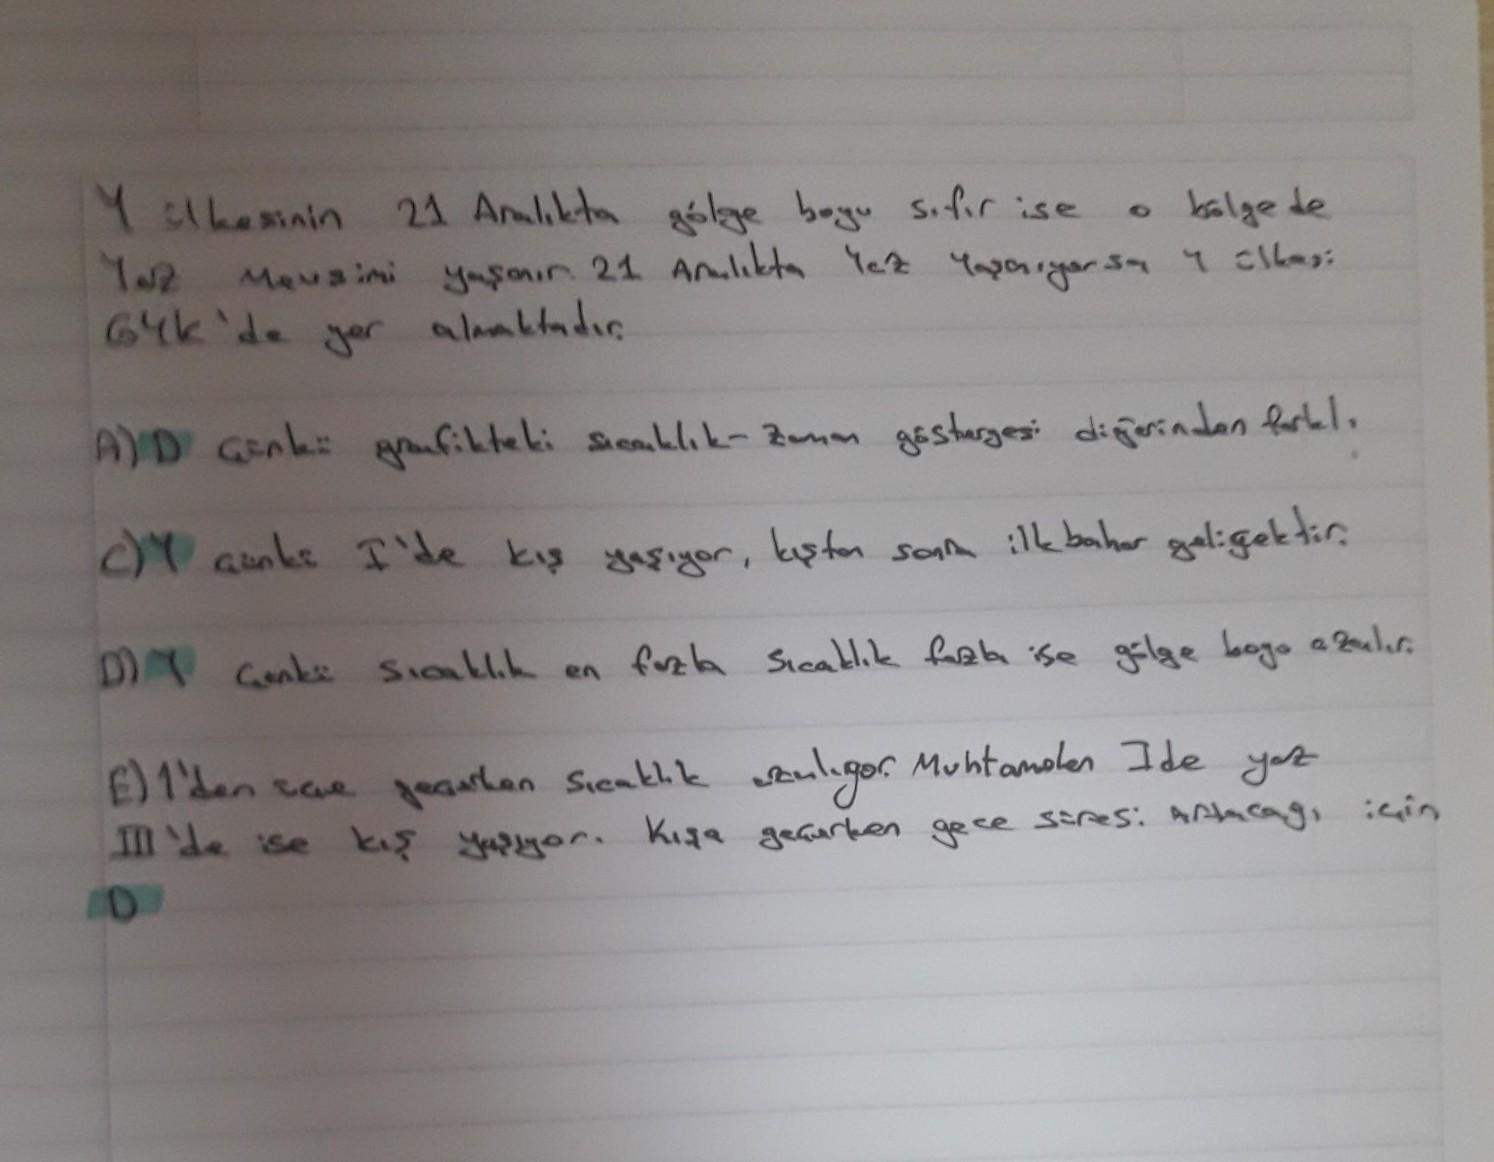 Y ülkesinin 21 Aralıkta gölge boyu sıfır ise o bölgede
Yaz Mevsimi yaşanır. 21 Aralıkta Yaz Yaşanıyorsa Y ülkesi
GYK'de yer almaktadır.
A) D Çünkü grafikteki sıcaklık-zaman göstergesi diğerinden farklı.
C) Y Çünkü I'de kış yaşıyor, kıştan sonra ilkbahar geliçektir.
D) Y Çünkü sıcaklık en fazla sıcaklık fazla ise gölge boyu azalır.
E) 1'den geçerken sıcaklık azalıyor. Muhtamelen I de yaz
III'de ise kış yaşıyor. Kışa geçerken gece süresi artacağı için
D